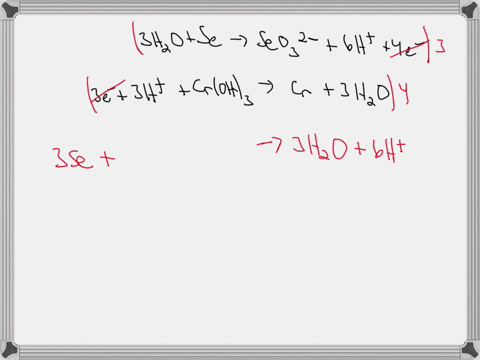 (3H₂O + Se → SeO₃²⁻ + 6H⁺ + 4e⁻)3
(3e⁻ + 3H⁺ + Cr(OH)₃ → Cr + 3H₂O)4
3Se + → 3H₂O + 6H⁺